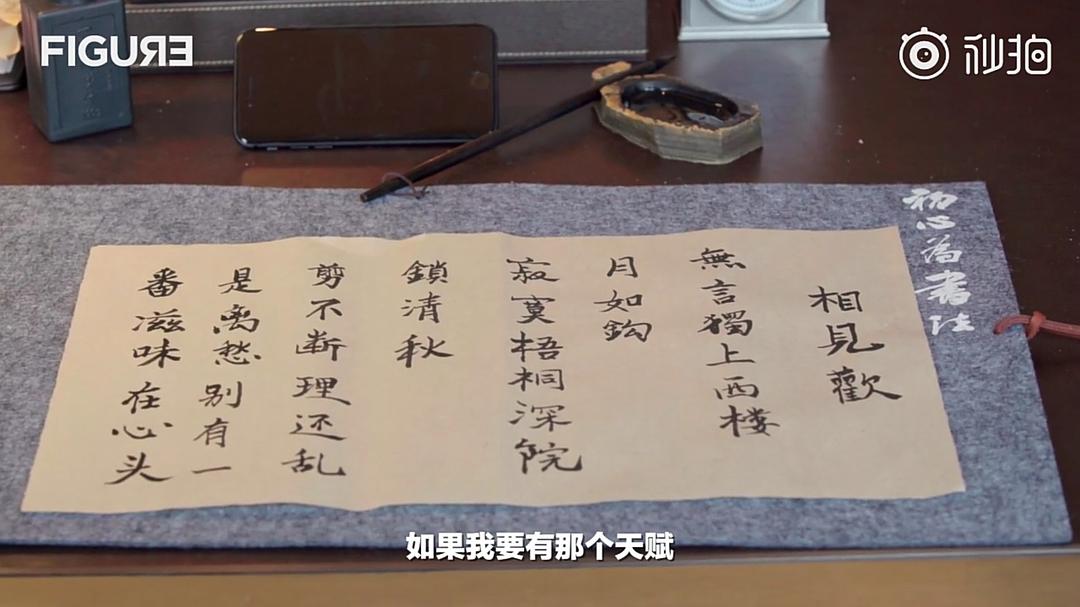 FIGURE
秒拍
初心為書法
相見歡
無言獨上西楼
月如鈎
寂寞梧桐深院
鎖清秋
剪不断理还乱
是离愁别有一
番滋味在心头
如果我要有那个天赋